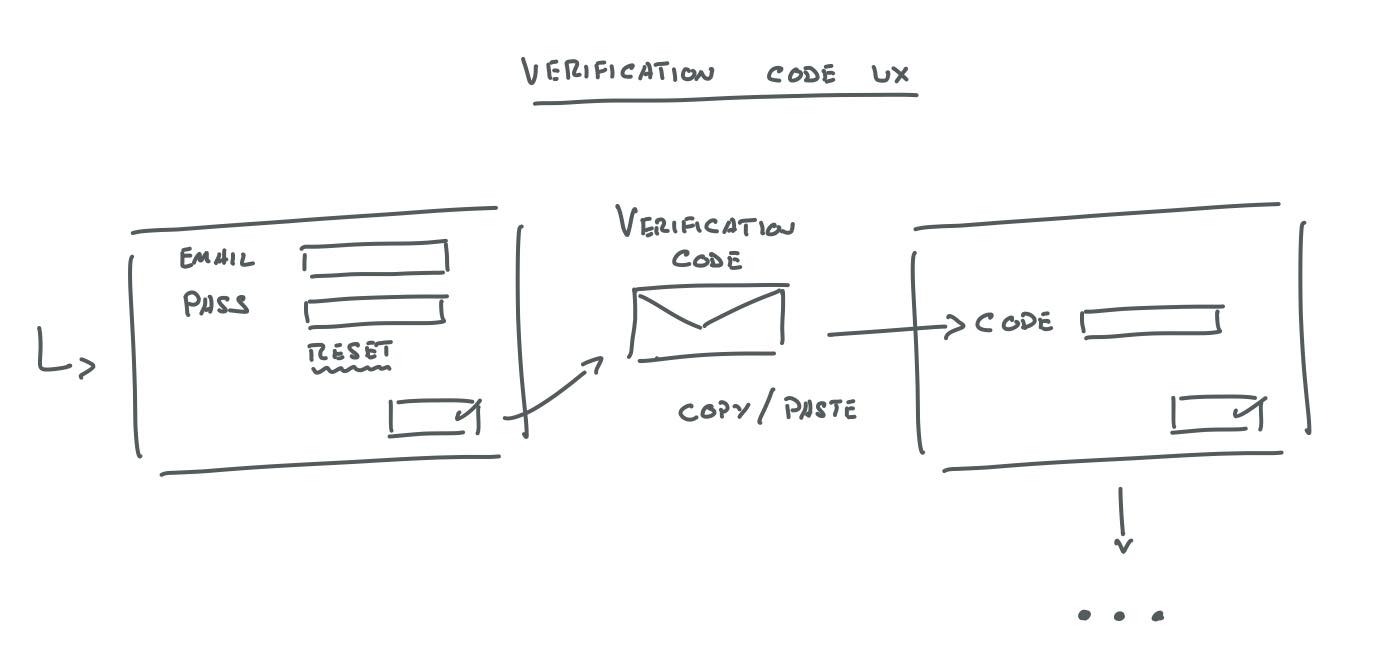 VERIFICATION CODE UX
EMAIL
PASS
RESET
VERIFICATION
CODE
COPY/PASTE
CODE
...